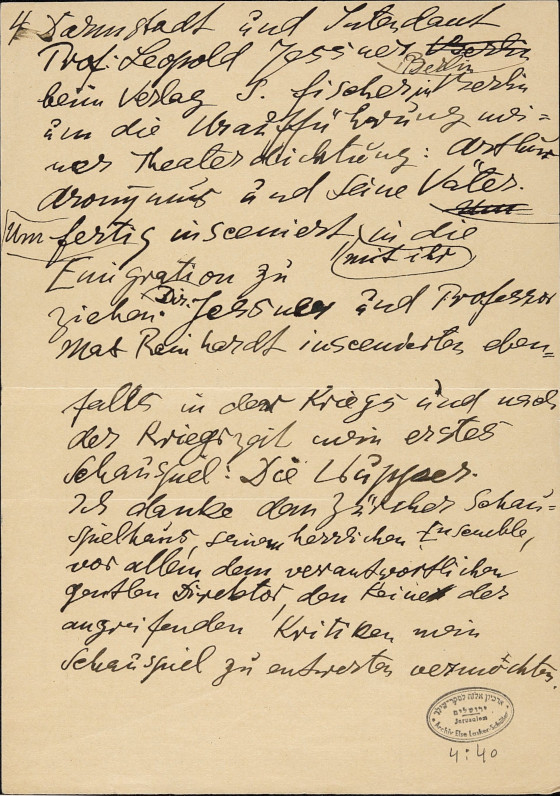 4 Darmstadt und Intendant
Prof. Leopold Jessner Berlin
Berlin
beim Verlag S. Fischer Berlin
um die Uraufführung mei=
ner Theaterdichtung: Arthur
Aronymus und seine Väter.
Um fertig insceniert mit ihr in die
Emigration zu
ziehen. Dir. Jessner und Professor
Max Reinhardt inscenierten eben=
falls in der Kriegs und nach
der Kriegszeit mein erstes
Schauspiel: Die Wupper.
Ich danke dem Zürcher Schau=
spielhaus, seinem herrlichen Ensemble,
vor allem dem verantwortlichen
gentlen Direktor, den keine der
angreifenden Kritiken mein
Schauspiel zu entwerten vermöchten.
ארכיון אלזה לסקר-שילר
ירושלים
Jerusalem
Archiv Else Lasker-Schüler
4:40